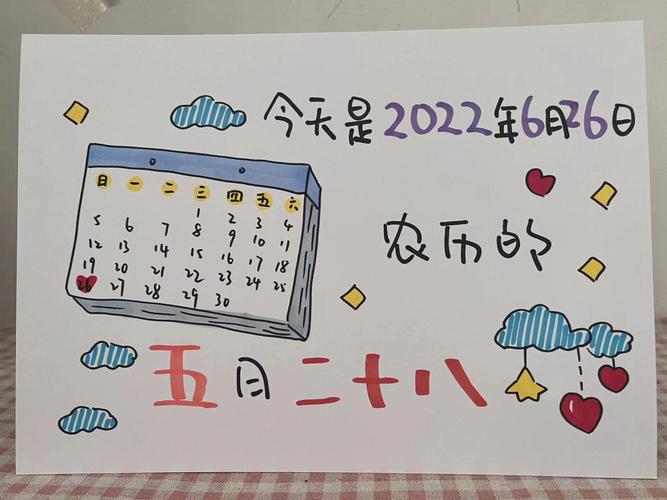 今天是2022年6月26日
日 一 二 三 四 五 六
1 2 3 4
5 6 7 8 9 10 11
12 13 14 15 16 17 18
19 20 21 22 23 24 25
26 27 28 29 30
农历的
五月二十八